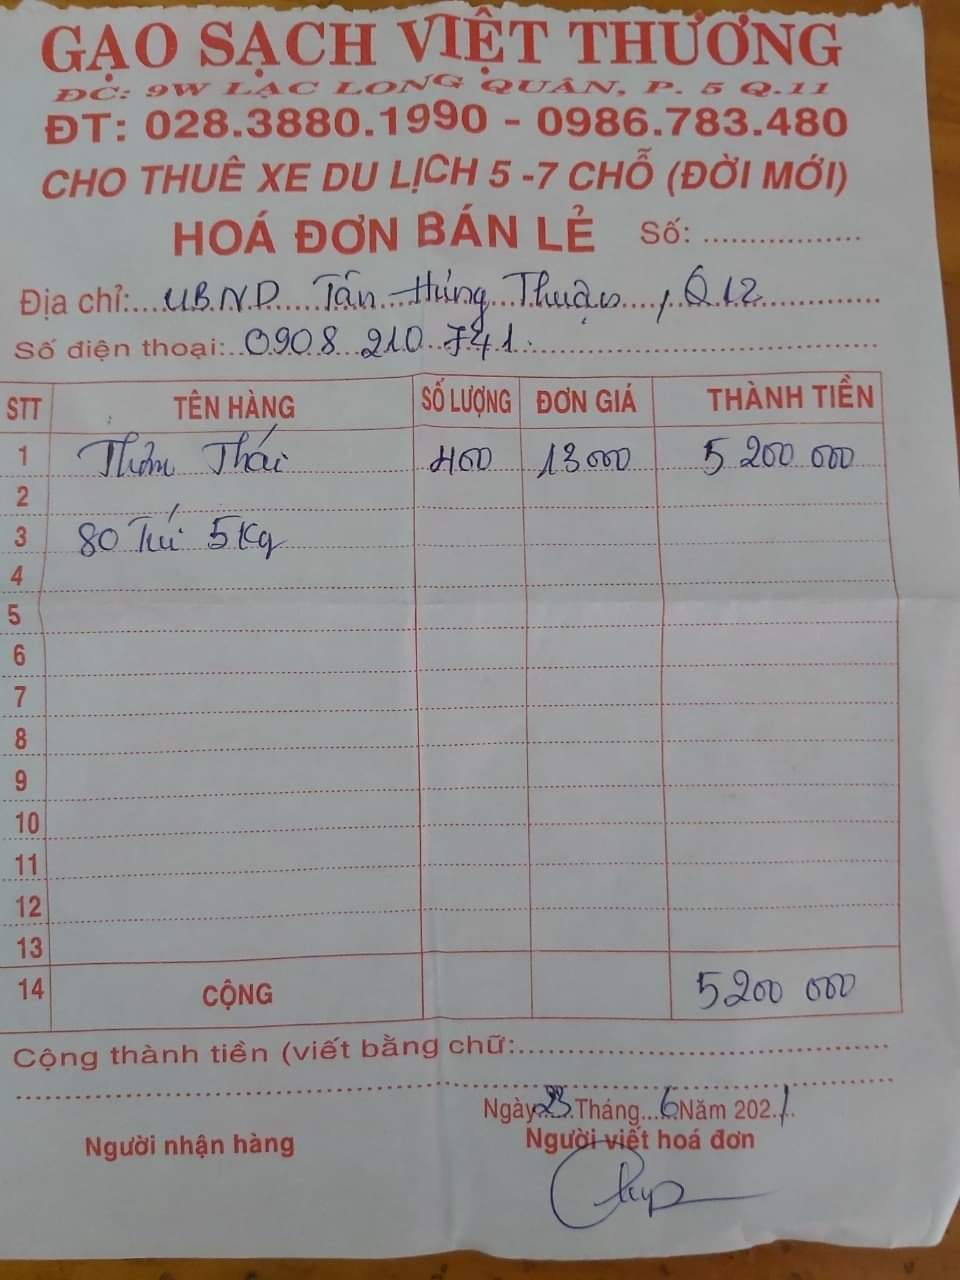 GẠO SẠCH VIỆT THƯƠNG
ĐC: 9W LẠC LONG QUÂN, P. 5 Q.11
ĐT: 028.3880.1990 - 0986.783.480
CHO THUÊ XE DU LỊCH 5 -7 CHỖ (ĐỜI MỚI)
HOÁ ĐƠN BÁN LẺ Số: ..................
Địa chỉ:....UBND Tân Hưng Thuận, Q12
Số điện thoại:..0908 210 741.
STT TÊN HÀNG SỐ LƯỢNG ĐƠN GIÁ THÀNH TIỀN
1 Thơm Thái 400 13 000 5 200 000
2
3 80 Túi 5Kg
4
5
6
7
8
9
10
11
12
13
14 CỘNG 5200 000
Cộng thành tiền (viết bằng chữ:..........................................
Ngày 23 Tháng...6 Năm 2021
Người nhận hàng Người viết hoá đơn